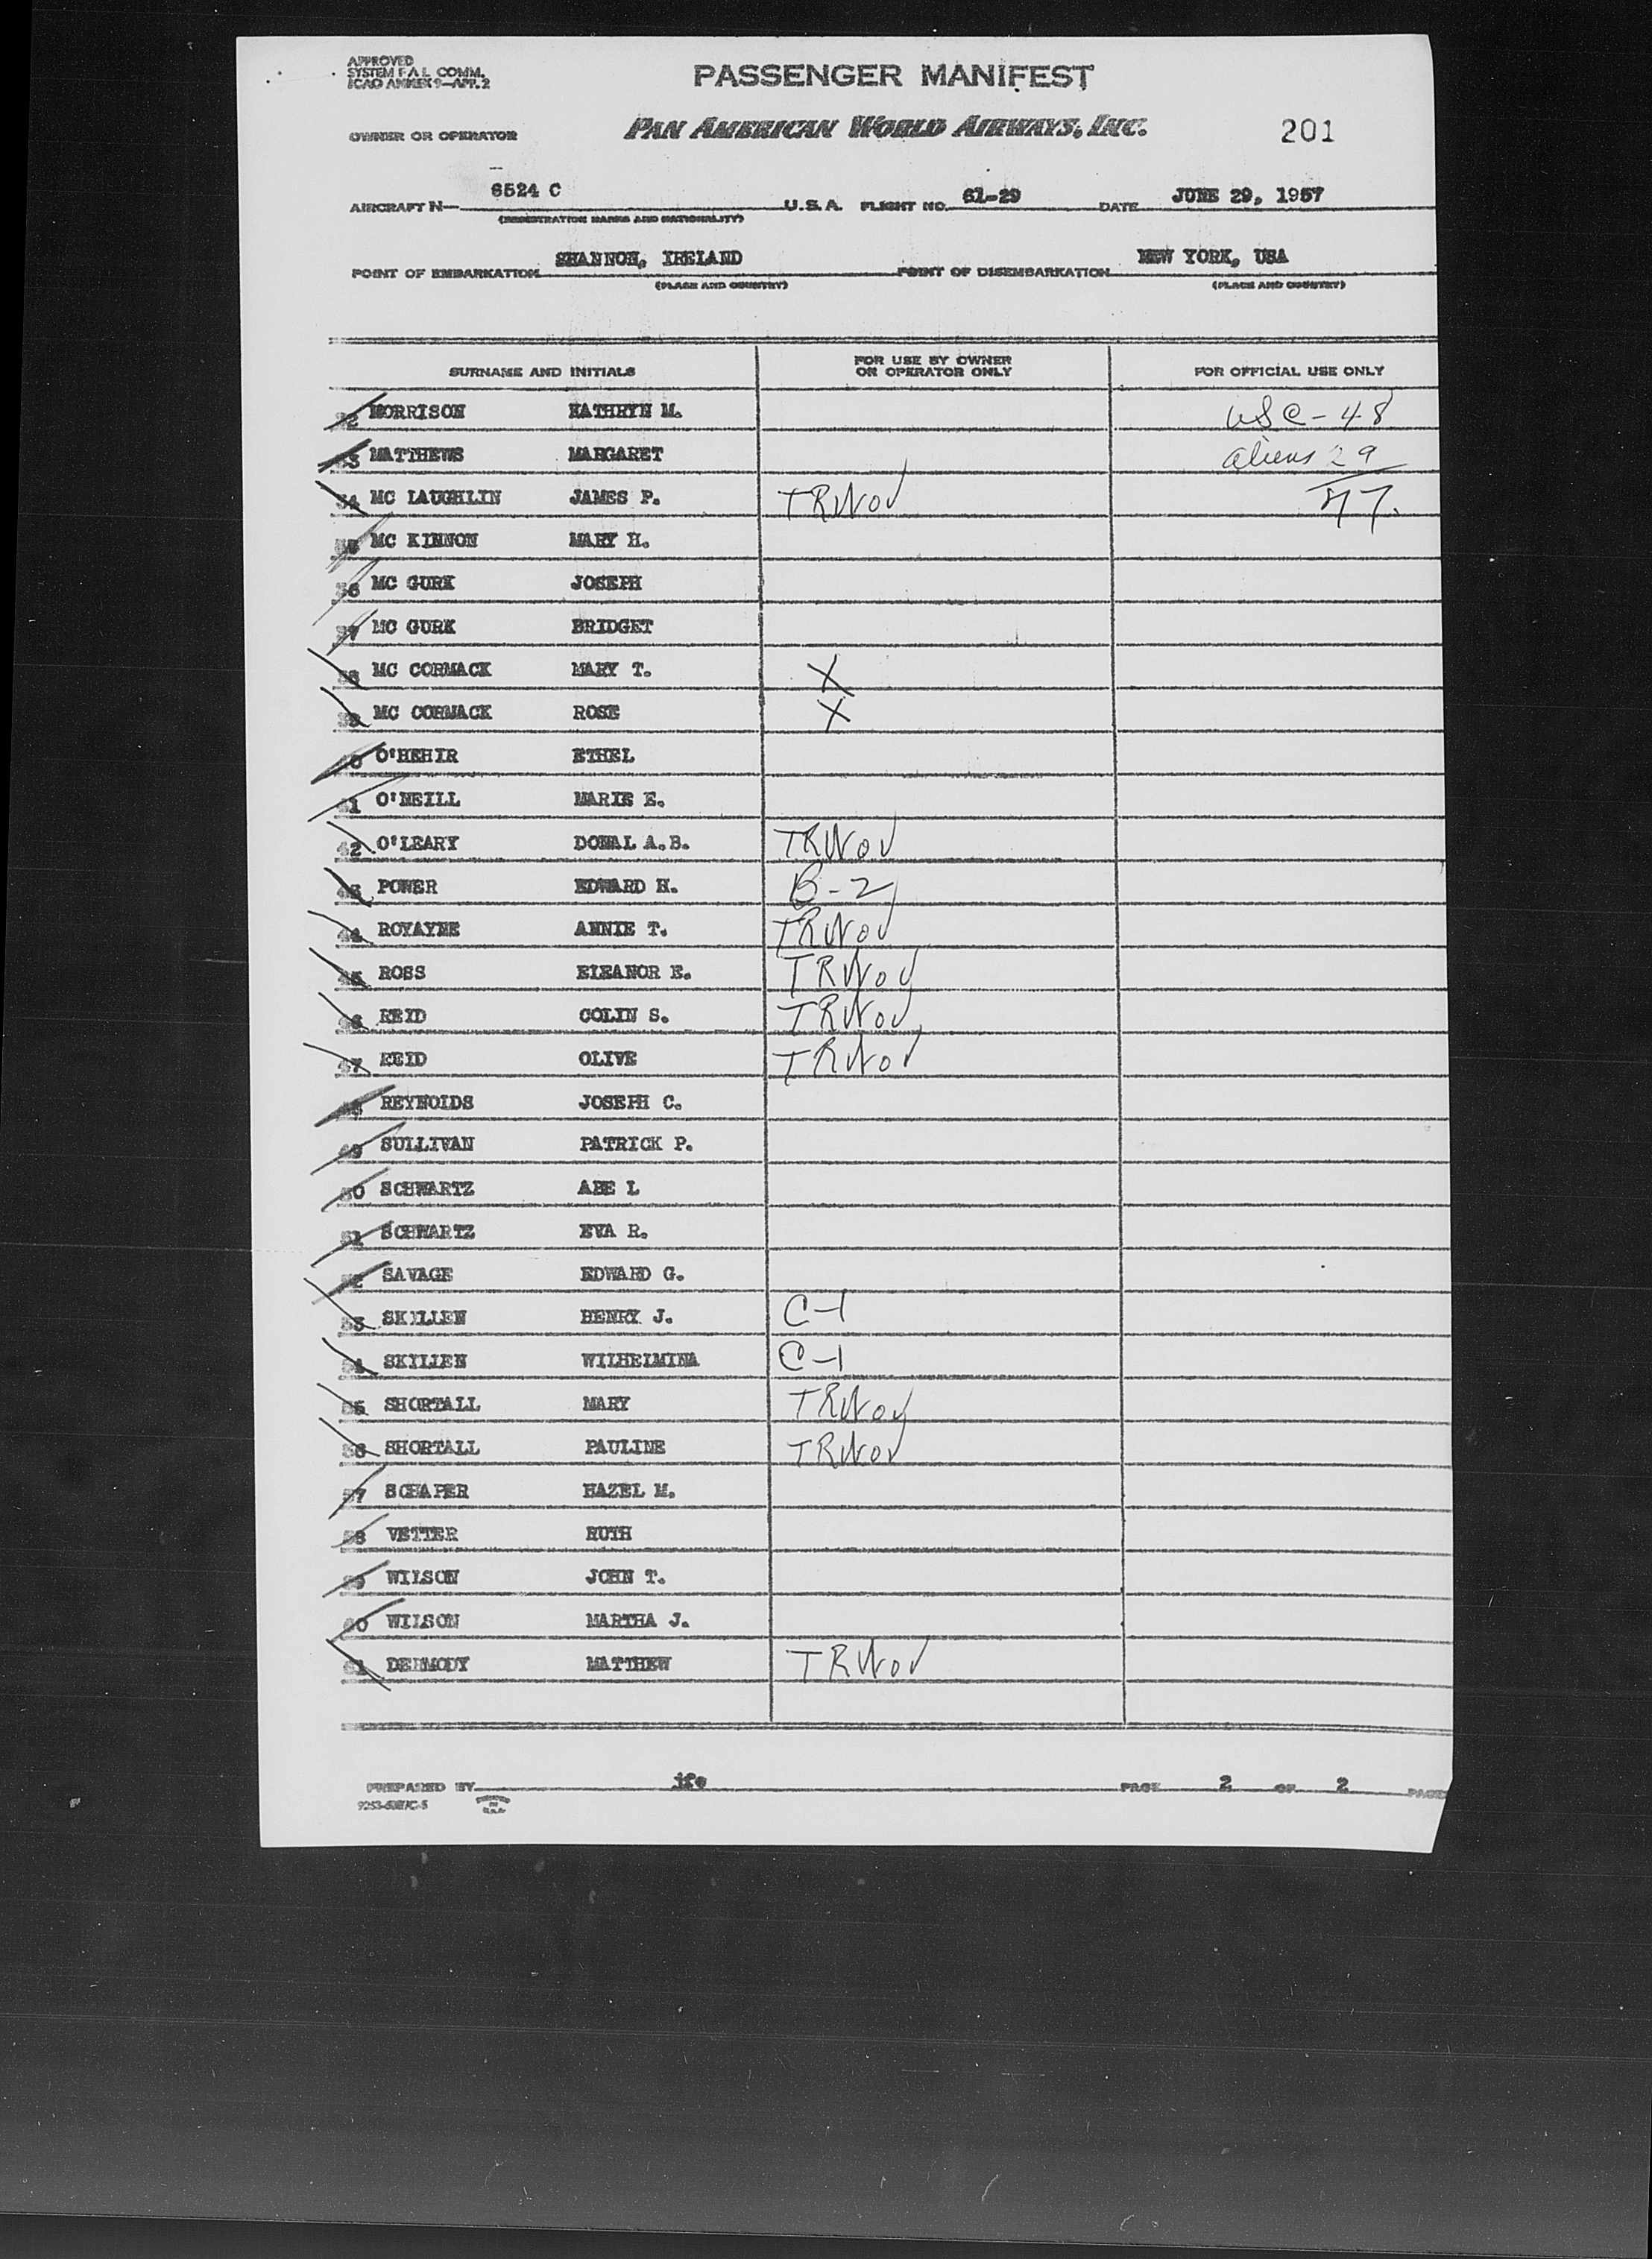 APPROVED
SYSTEM F A L COMM.
ICAO ANNEX 9—APP. 2
PASSENGER MANIFEST
OWNER OR OPERATOR PAN AMERICAN WORLD AIRWAYS, INC. 201
AIRCRAFT N— 6524 C U.S.A. FLIGHT NO. 61-29 DATE JUNE 29, 1957
(REGISTRATION MARKS AND NATIONALITY)
POINT OF EMBARKATION SHANNON, IRELAND POINT OF DISEMBARKATION NEW YORK, USA
(PLACE AND COUNTRY) (PLACE AND COUNTRY)
SURNAME AND INITIALS FOR USE BY OWNER OR OPERATOR ONLY FOR OFFICIAL USE ONLY
32 MORRISON KATHRYN M. USC-48
33 MATTHEWS MARGARET aliens 29
34 MC LAUGHLIN JAMES P. TRWov 77.
35 MC KINNON MARY H.
36 MC GURK JOSEPH
37 MC GURK BRIDGET
38 MC CORMACK MARY T. X
39 MC CORMACK ROSE X
40 O'HEHIR ETHEL
41 O'NEILL MARIE E.
42 O'LEARY DONAL A.B. TRWov
43 POWER EDWARD H. B-2
44 ROYAYNE ANNIE T. TRWov
45 ROSS ELEANOR E. TRWov
46 REID COLIN S. TRWov
47 REID OLIVE TRWov
48 REYNOLDS JOSEPH C.
49 SULLIVAN PATRICK P.
50 SCHWARTZ ABE L
51 SCHWARTZ EVA R.
52 SAVAGE EDWARD G.
53 SKILLEN HENRY J. C-1
54 SKILLEN WILHELMINA C-1
55 SHORTALL MARY TRWov
56 SHORTALL PAULINE TRWov
57 SCHAPER HAZEL M.
58 VETTER RUTH
59 WILSON JOHN T.
60 WILSON MARTHA J.
61 DERMODY MATTHEW TRWov
PREPARED BY jfo PAGE 2 OF 2 PAGES